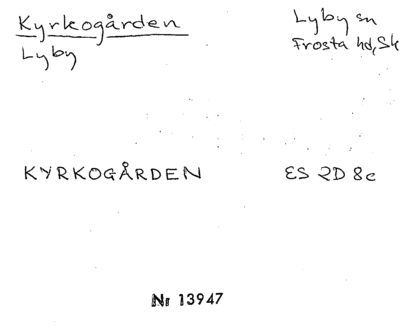 Kyrkogården
Lyby
Lyby sn
Frosta hd, Sk
KYRKOGÅRDEN
ES 2D 8c
Nr 13947